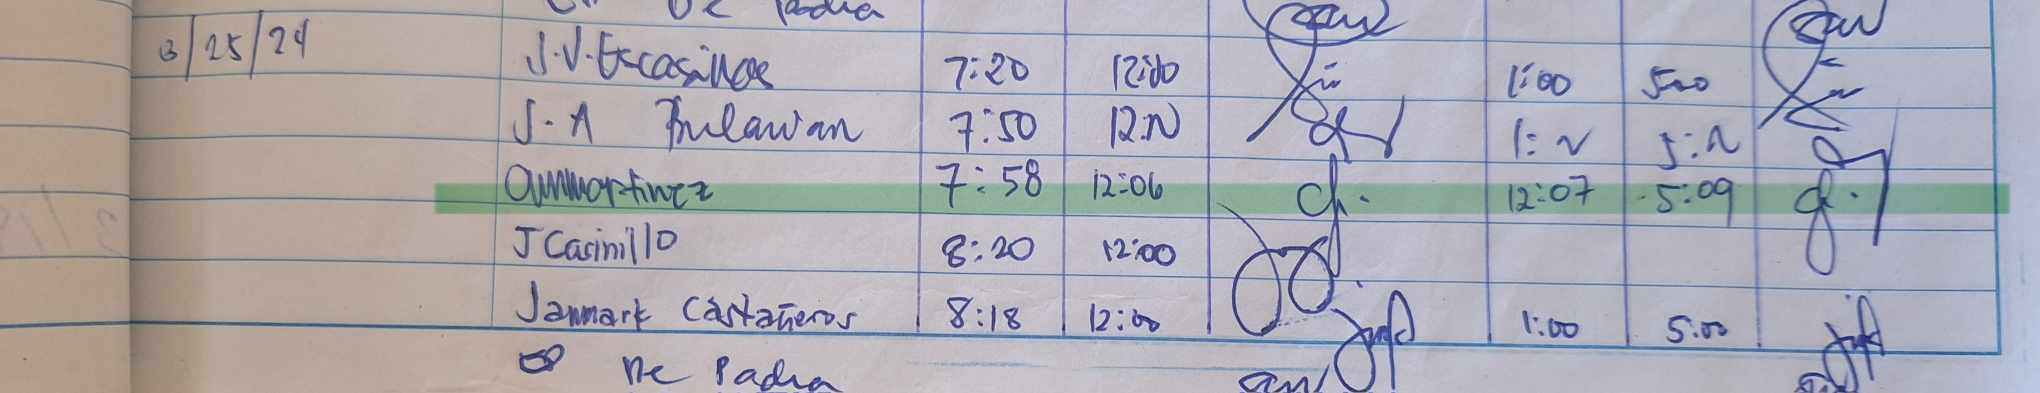 De Padua
3/25/24 J.V. Escasinas 7:20 12:00 1:00 5:00
J. A Bulawan 7:50 12:N 1:N 5:N
ammartinez 7:58 12:06 12:07 5:09
J Casinillo 8:20 12:00
Janmark Castañeros 8:18 12:00 1:00 5:00
De Padua